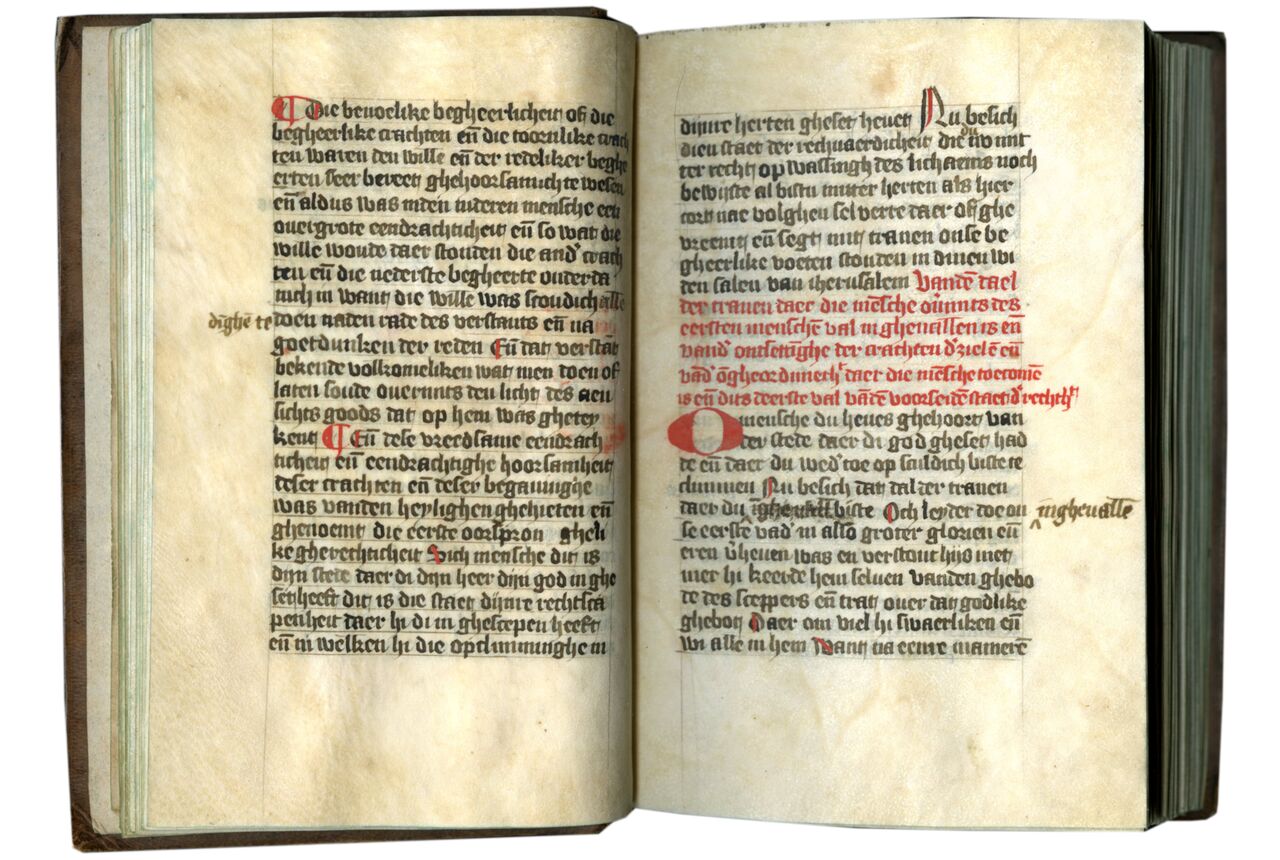 Die bevoelike begheerlicheit of die
begheerlike crachten en̄ die toornlike crach
ten waren den wille en̄ der redeliker beghe
erten seer bereet ghehoorsamich te wesen
en̄ aldus was inden inderen mensche een
overgrote eendrachticheit en̄ so wat die
wille woude daer stonden die and' crach
ten en̄ die nederste begheerte onderda
nich in want die wille was scoudich alle
dinghē te doen naden rade des verstants en̄ na
goetdunken der reden En̄ dat verstāt
bekende volkomeliken wat men doen of
laten soude overmits den licht des aen
sichts goods dat op hem was ghetey
kent En̄ dese vreedsame eendrach
ticheit en̄ eendrachtighe hoorsamheit
deser crachten en̄ deser begavinghe
was vanden heylighen ghehieten en̄
ghenoemt die eerste oorspron gheli
ke gherechticheit Sich mensche dit is
dijn stede daer di dijn heer dijn god in ghe
set heeft dit is die staet dijnre rechtsca
penheit daer hi di in ghescepen heeft
en̄ in welken hi die opclimminghe in
dijnre herten gheset hevet Nu besich
dien staet der rechvaerdicheit die du mit
ter recht opwassingh des lichaems noch
bewijste al bistu mitter herten als hier
cort nae volghen sel verre daer of ghe
vreemt en̄ segt mit tranen onse be
gheerlike voeten stonden in dinen wi
den salen van iherusalem Vandē dael
der tranen daer die mēsche ov'mits des
eersten menschē val in ghevallen is en̄
vand' ontsettīghe der crachten d' zielē en̄
vād' ōgheordineth' daer die mēsche toe comē
is en̄ dits deerste val vandē voorseidē staet d' rechth'
O mensche du heves ghehoort van
der stede daer di god gheset had
de en̄ daer du wed' toe op salddich biste te
clinmen Nu besich dat dal der tranen
daer du īghevallē biste Och leyder doe on inghevallē
se eerstē vad' in also groter glorien en̄
eren v'heven was en verstont hijs niet
mer hi keerde hem selven vanden ghebo
de des sceppers en̄ trat over dat godlike
ghebot Daer om viel hi swaerliken en̄
wi alle in hem Want na eenre manierē